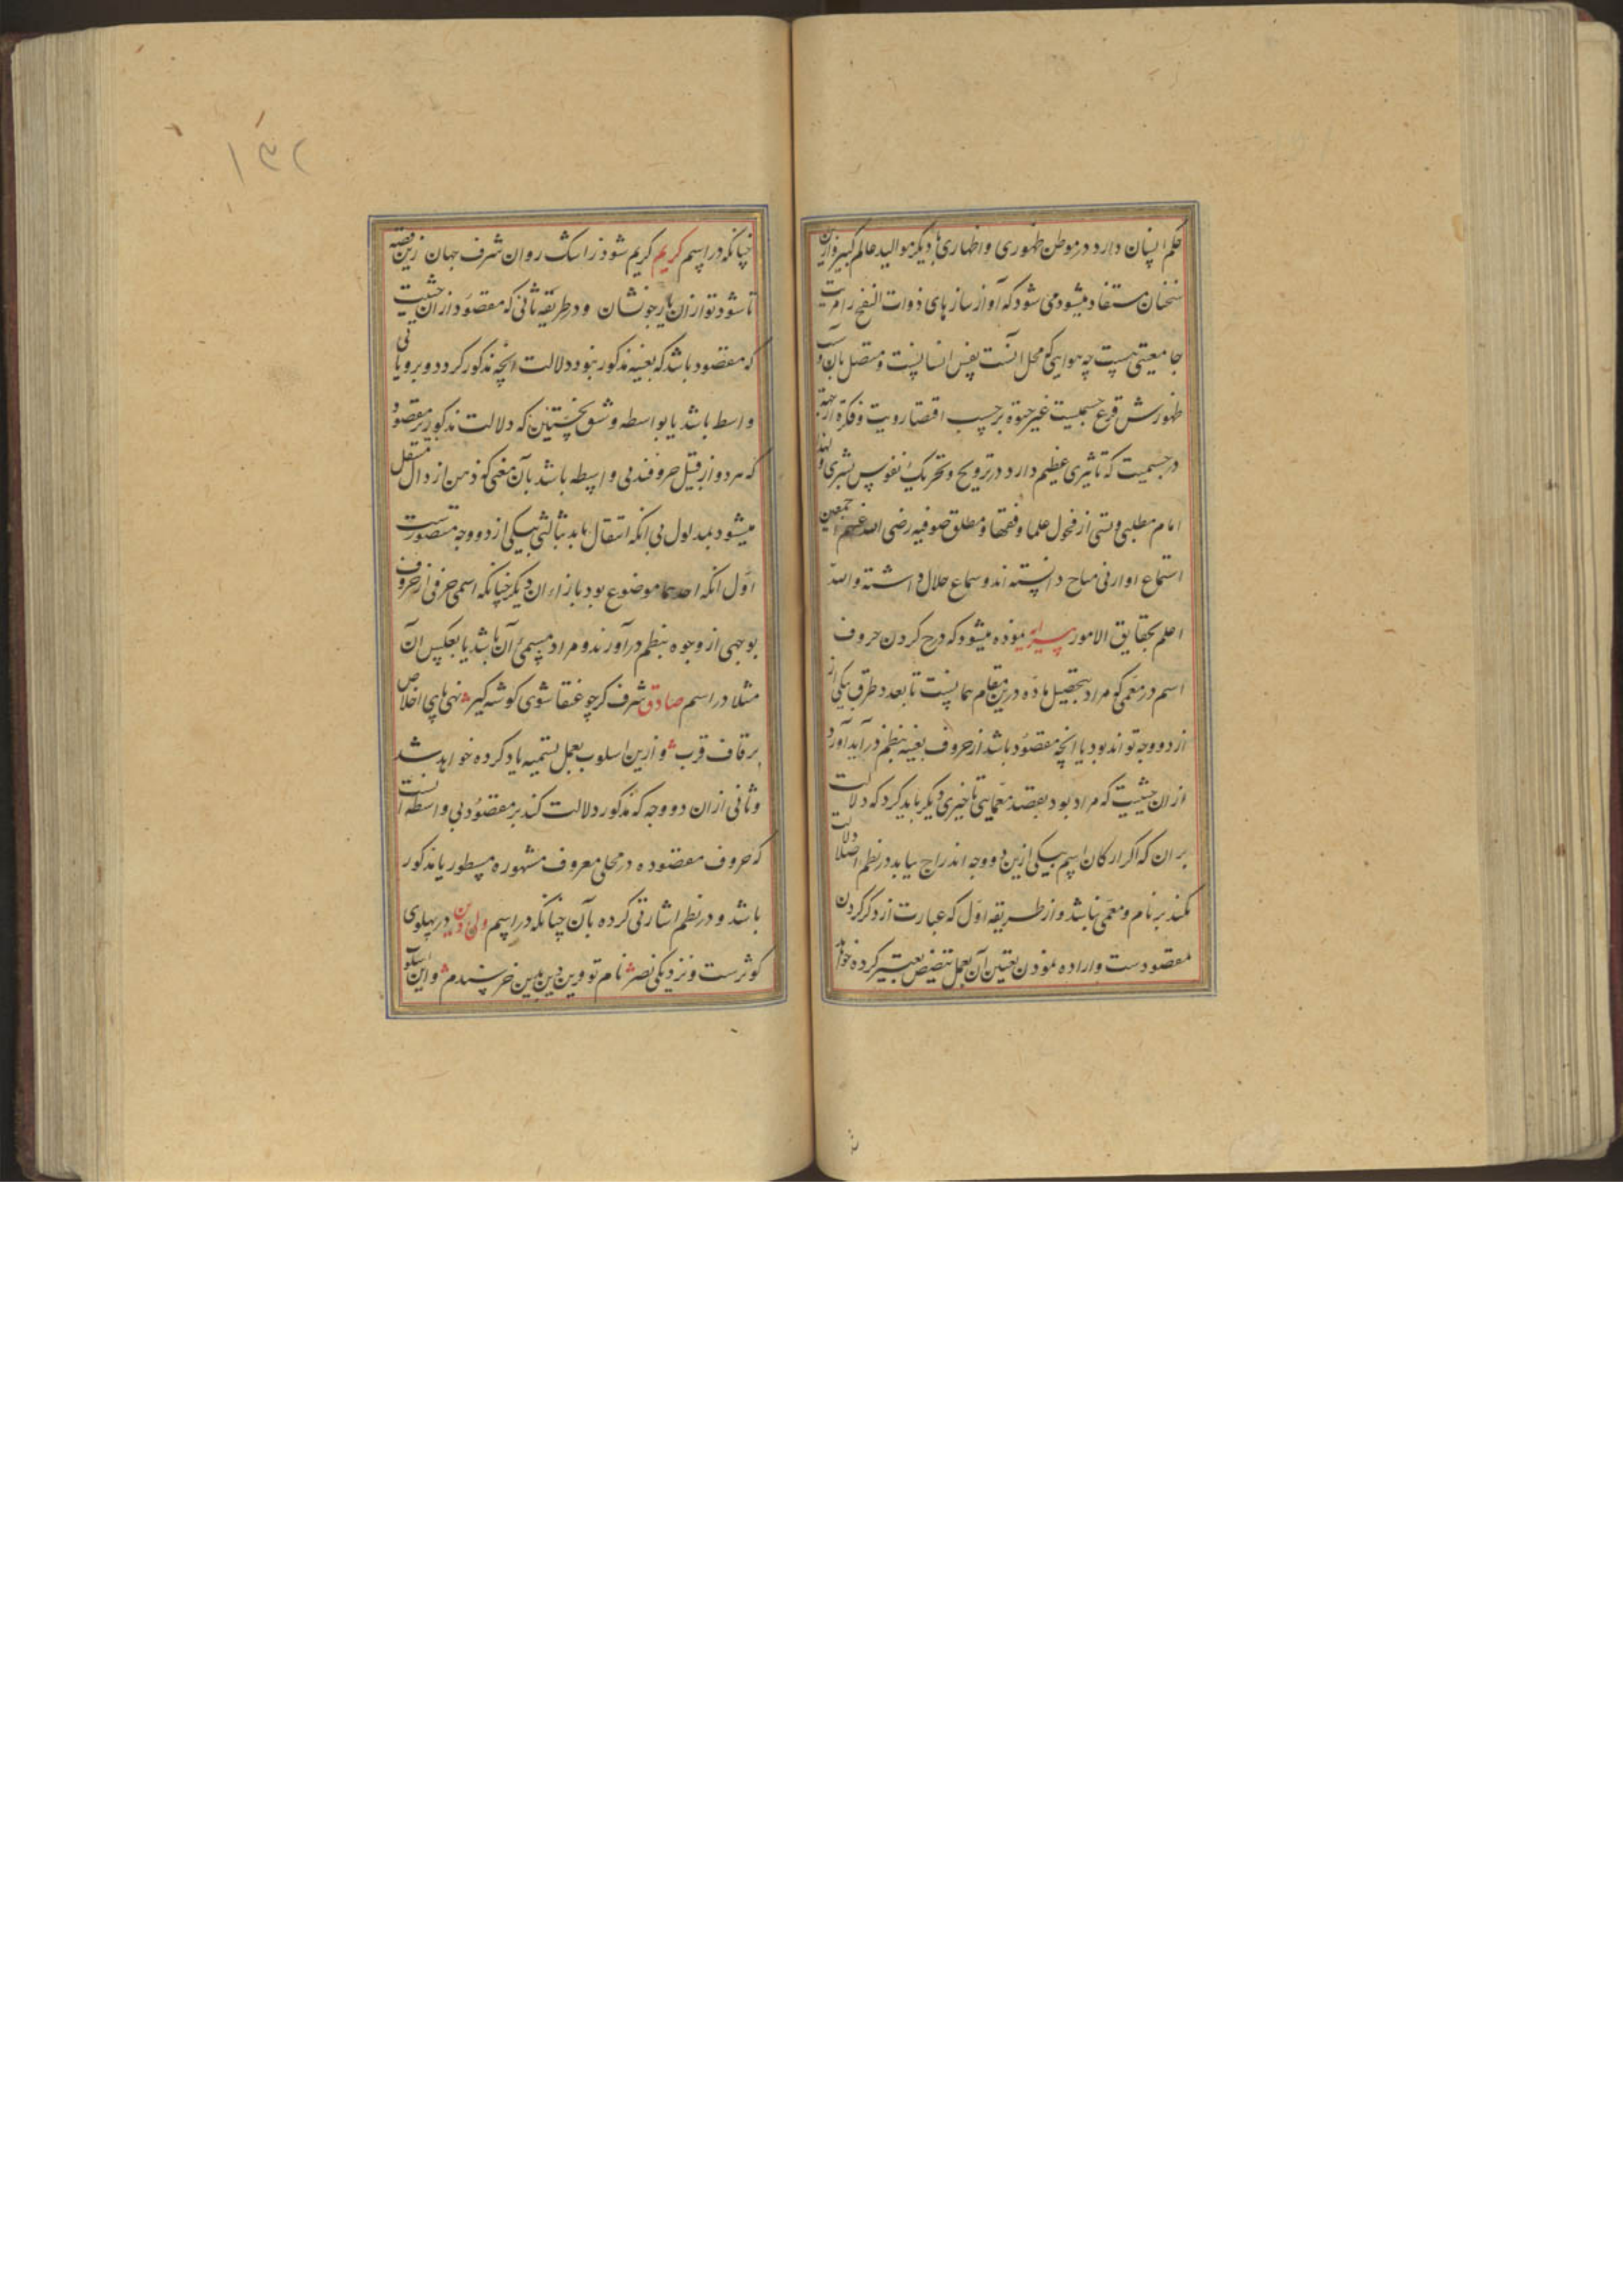 حکم انسان دارد در موطن ظهوری و اظهاری با دیگر موالید عالم کبیر و ازین
سخنان مستفاد میشود می شود که آواز سازهای ذوات النفخ را مزیت
جامعیتی هست چه هوایی که محل آنست نفس انسانیست و متصل بآن و سبب
ظهورش قرع جسمیست غیر حیوة بر حسب اقتضا رویت و فکرة از جهة
در جسمیت که تاثیری عظیم دارد در ترویح و تحریک نفوس بشری و لهذا
امام مطلبی و شتی از فحول علما و فقها و مطلق صوفیه رضی الله عنهم اجمعین
استماع او ارنی مباح دانسته اند و سماع حلال داشته والله
اعلم بحقایق الامور پیرایه نموده میشود که درج کردن حروف
اسم در معمی که مراد بتحصیل ماده درین مقام همانست تا بعدد طرق بیکی از
از دو وجه تواند بود یا انچه مقصود باشد از حروف بعینه بنظم در آید آورد
از ان حیثیت که مراد بود بقصد معمایی تا خیری دیگر باید کرد که دلالت
بر ان که اگر ارکان اسم بیکی ازین دو وجه اندراج نیابد در نظم اصلا دلالت
نکند بر نام و معمی نباشد و از طریقه اول که عبارت از ذکر کردن
مقصودست و اراده نمودن بتعیین آن بعمل تنصیص تعبیر کرده خواهد
۱۳۲
چنانکه در اسم کریم کریم شود ز اشک روان شرف جهان زین قصه
تا شود تو از ان باز جو نشان و در طریقه ثانی که مقصود از ان حیثیت
که مقصود باشد که بعینه مذکور نبود دلالت انچه مذکور کردد و بر و یا بی
واسط باشد یا بواسطه و شق نخستین که دلالت مذکور بر مقصود
که هر دو از قبیل حروفند بی واسطه باشد بآن معنی که ذهن از دال منتقل
میشود بمدلول بی انکه انتقال یابد بثالثی بیکی از دو وجه متصورست
اول انکه احدهما موضوع بود بازاء ان دیگر چنانکه اسمی حرفی از حروف
بوجهی از وجوه بنظم در آورند و مراد مسمی آن باشد یا بعکس آن
مثلا در اسم صادق شرف کرچو عنقا شوی کوشه کیر نهی پای اخلاص
بر قاف قرب و ازین اسلوب بعمل تسمیه یاد کرده خواهد شد
و ثانی از ان دو وجه که مذکور دلالت کند بر مقصود بی واسطه انست
که حروف مقصوده در محلی معروف مشهوره مسطور یا مذکور
باشد و در نظم اشارتی کرده بآن چنانکه در اسم ولی دین در پهلوی
کوثرست و نزدیکی نصر نام تو و دین بین خرسندم و این اسلوب